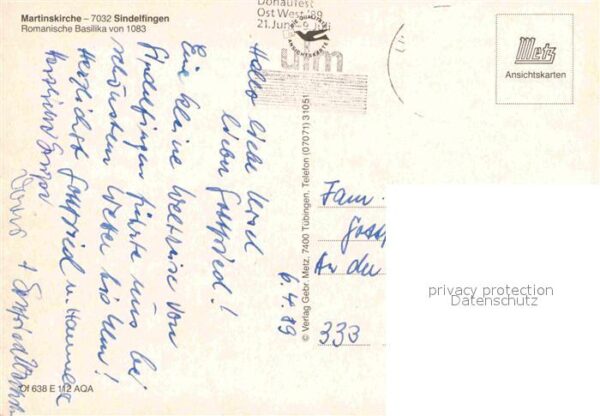 Martinskirche – 7032 Sindelfingen
Romanische Basilika von 1083
Donaufest
Ost West '89
21. Juni - 9. Juli
ulm
DIE QUALITÄTS
ANSICHTSKARTE
Metz
Ansichtskarten
Hallo liebe
lieber Gottfried!
Eine kleine Weltreise von
Sindelfingen führte uns bei
schönstem Wetter bis Ulm!
Herzlichst Gottfried u. Hannelore
Herzliche Grüße
6.4.89
© Verlag Gebr. Metz, 7400 Tübingen, Telefon (07071) 31051
Fam.
An der
333
privacy protection
Datenschutz
Of 638 E 112 AQA